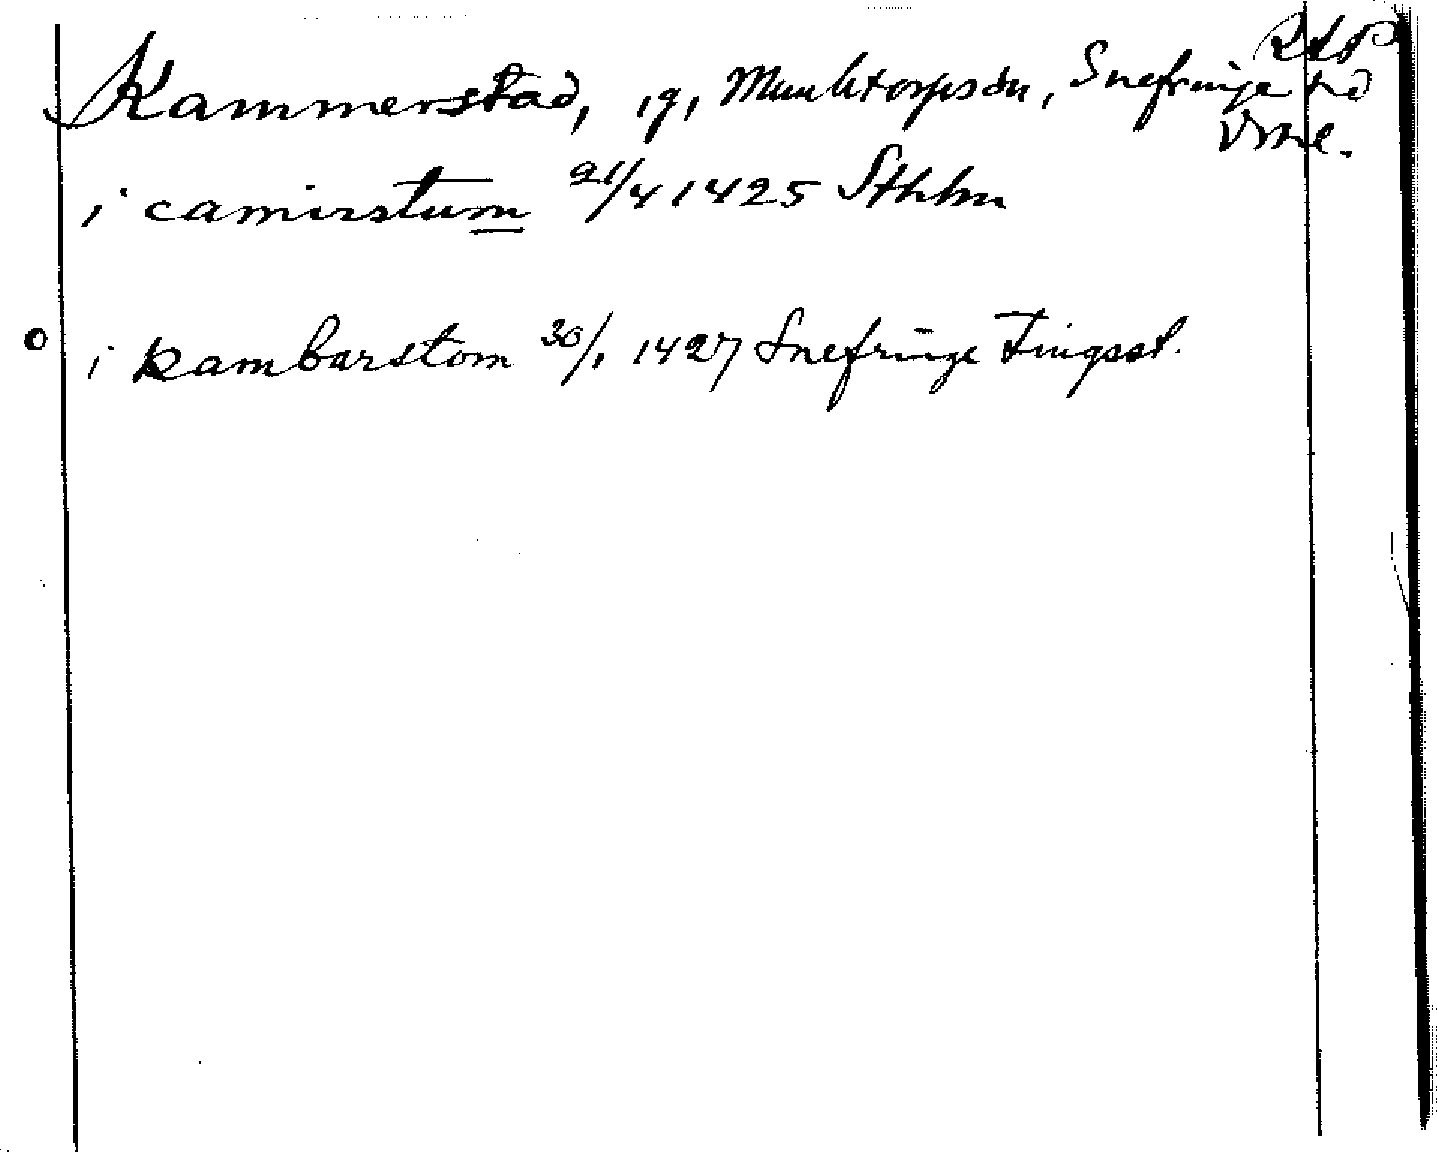 RAP
Kammerstad, ig, Munktorps sn, Snefringe hd
Vml.
i camirstum 21/4 1425 Sthlm
o i kambarstom 30/1 1427 Snefringe Tingsst.